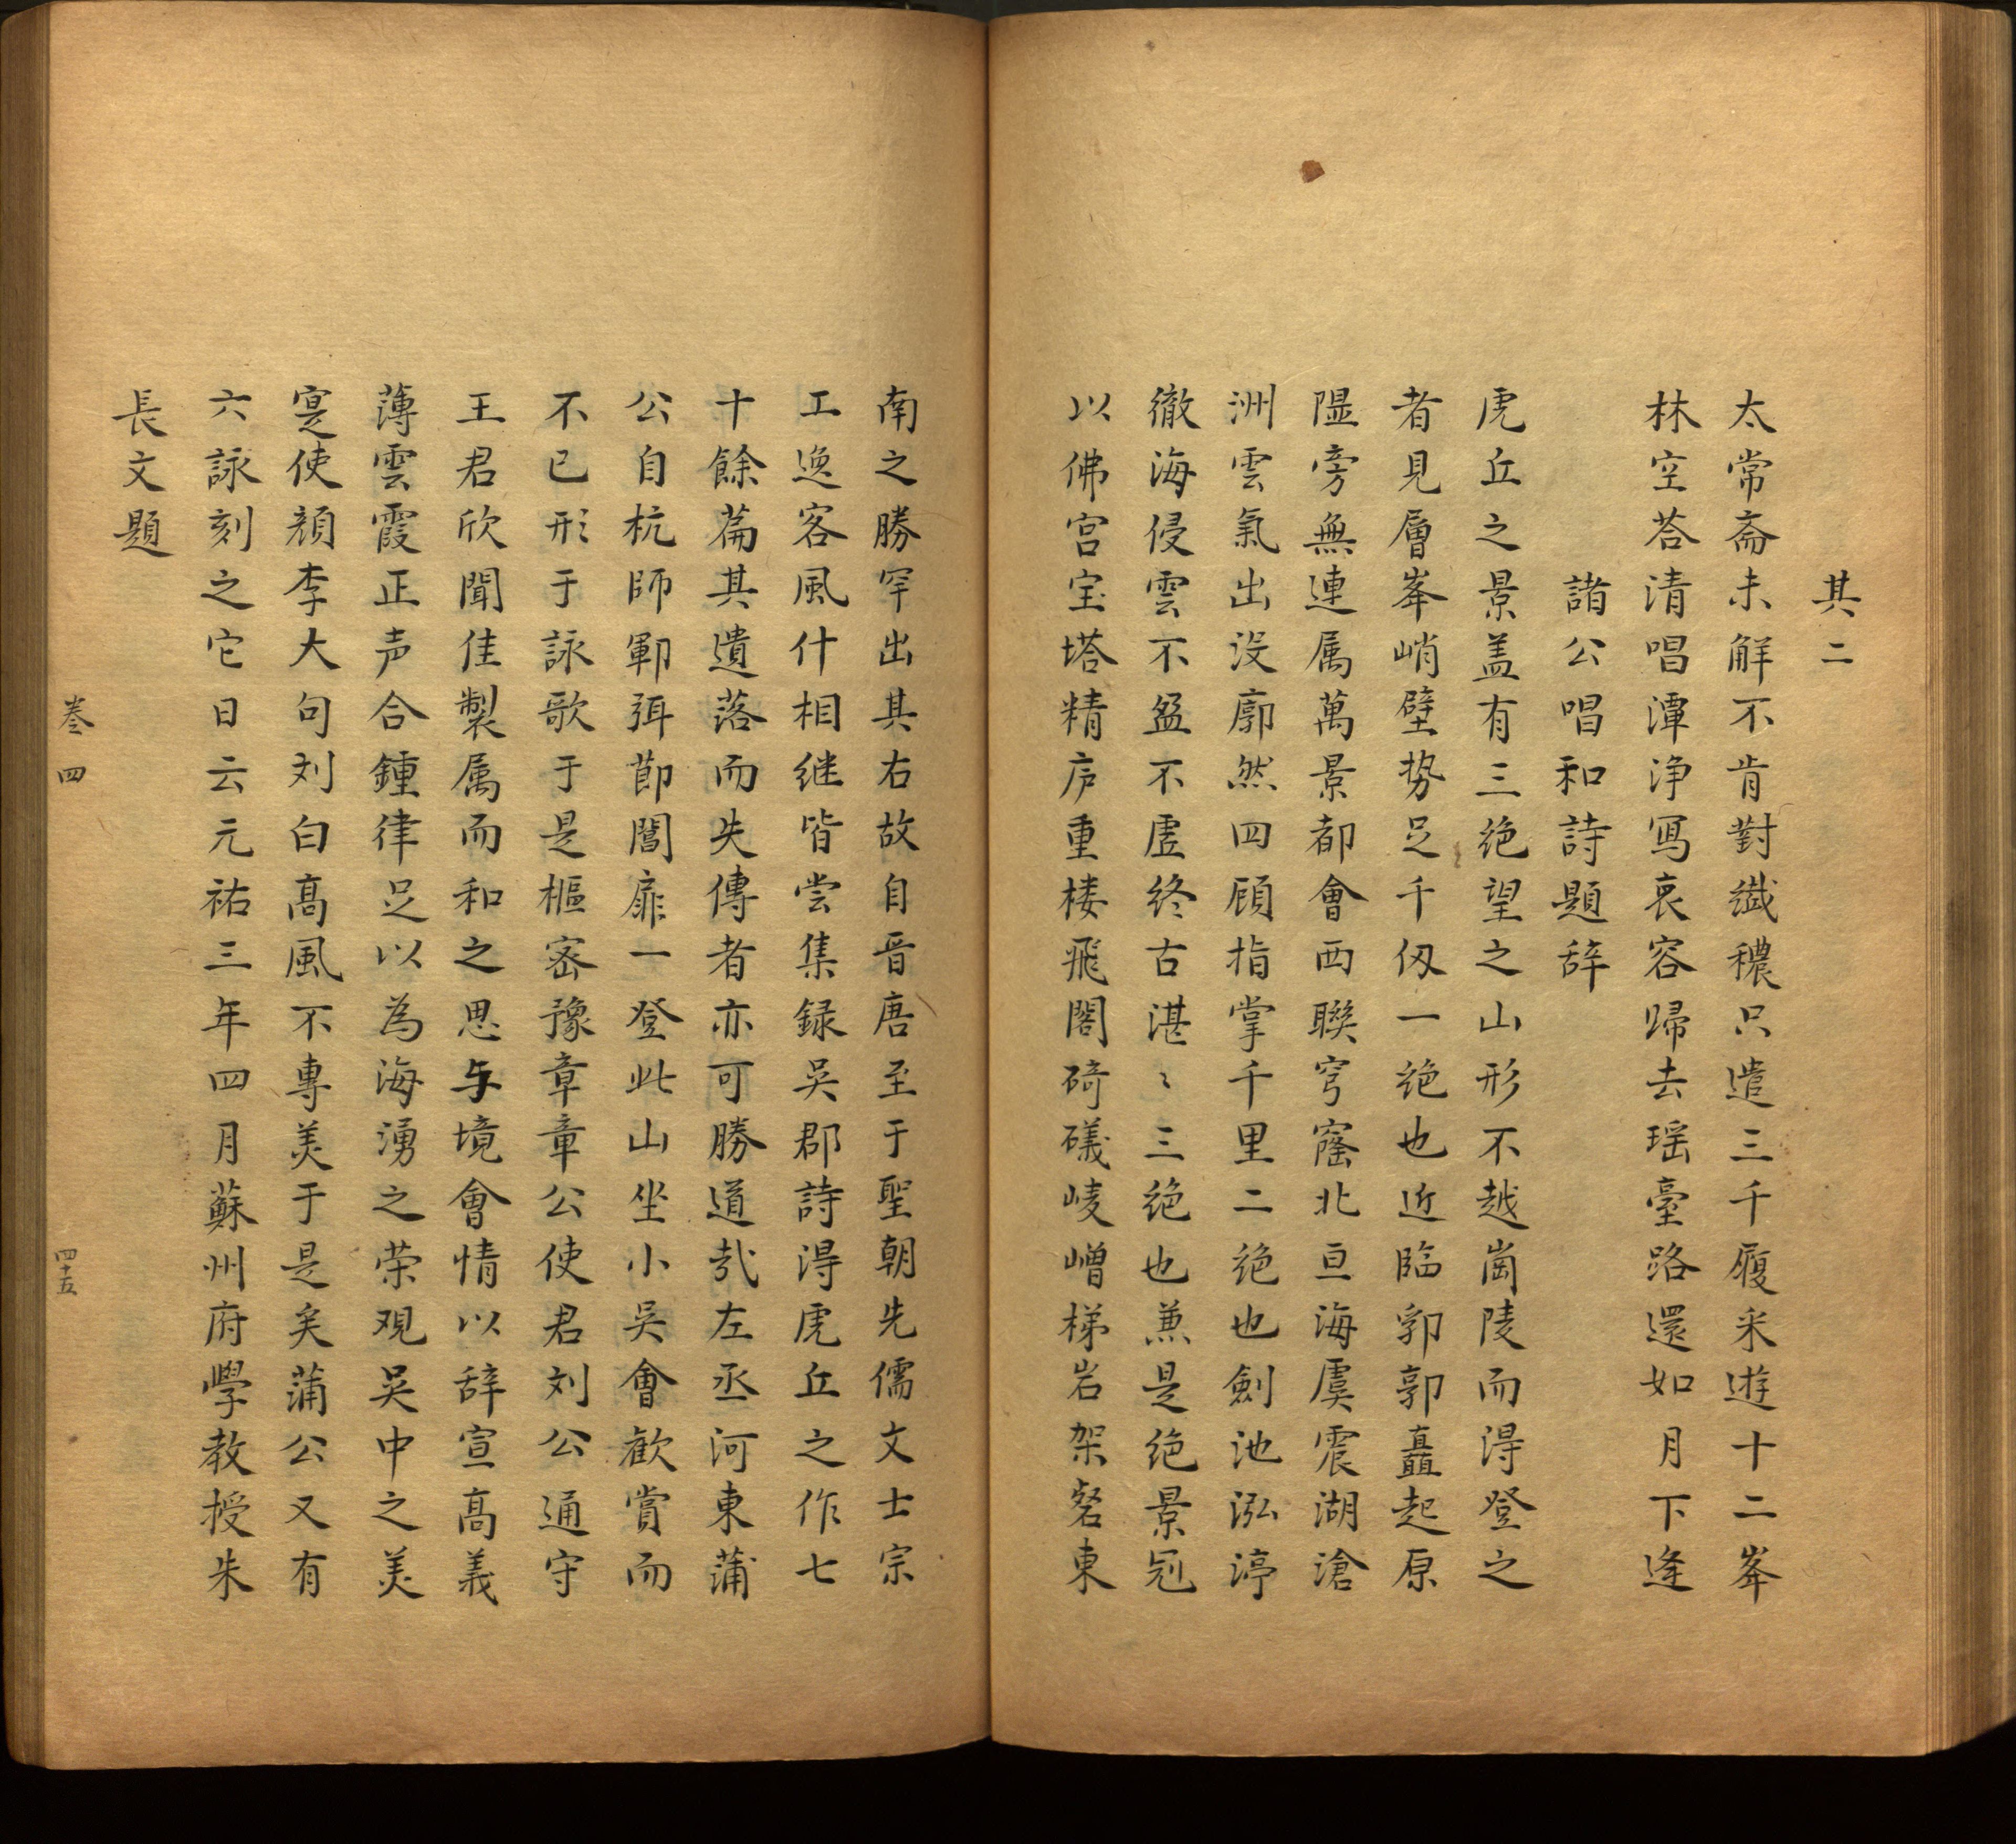 其二
太常斋未解不肯對纖穠只遣三千履来遊十二峯
林空荅清唱潭浄寫衰容歸去瑶臺路還如月下逢
諸公唱和詩題辞
虎丘之景盖有三絶望之山形不越崗陵而淂登之
者見層峯峭壁势足千仭一絶也近臨郛郭矗起原
隰旁無連属萬景都會西聯穹窿北亘海虞震湖滄
洲雲氣出没廓然四顧指掌千里二絶也劍池泓渟
徹海侵雲不盈不虛终古湛〻三絶也兼是絶景冠
以佛宫宝塔精庐重楼飛閣碕礒崚嶒梯岩架壑東
南之勝罕出其右故自晋唐至于聖朝先儒文士宗
工逸客風什相継皆尝集録吳郡詩淂虎丘之作七
十餘篇其遺落而失傳者亦可勝道㢤左丞河東蒲
公自杭師鄆弭節閶扉一登此山坐小吳會歡賞而
不已形于詠歌于是樞宻豫章章公使君刘公通守
王君欣聞佳製属而和之思与境會情以辞宣高義
薄雲霞正声合鍾律足以為海湧之荣观吳中之美
寔使顔李大句刘白高風不專美于是矣蒲公又有
六詠刻之它日云元祐三年四月蘇州府學教授朱
長文題
卷四
四十五